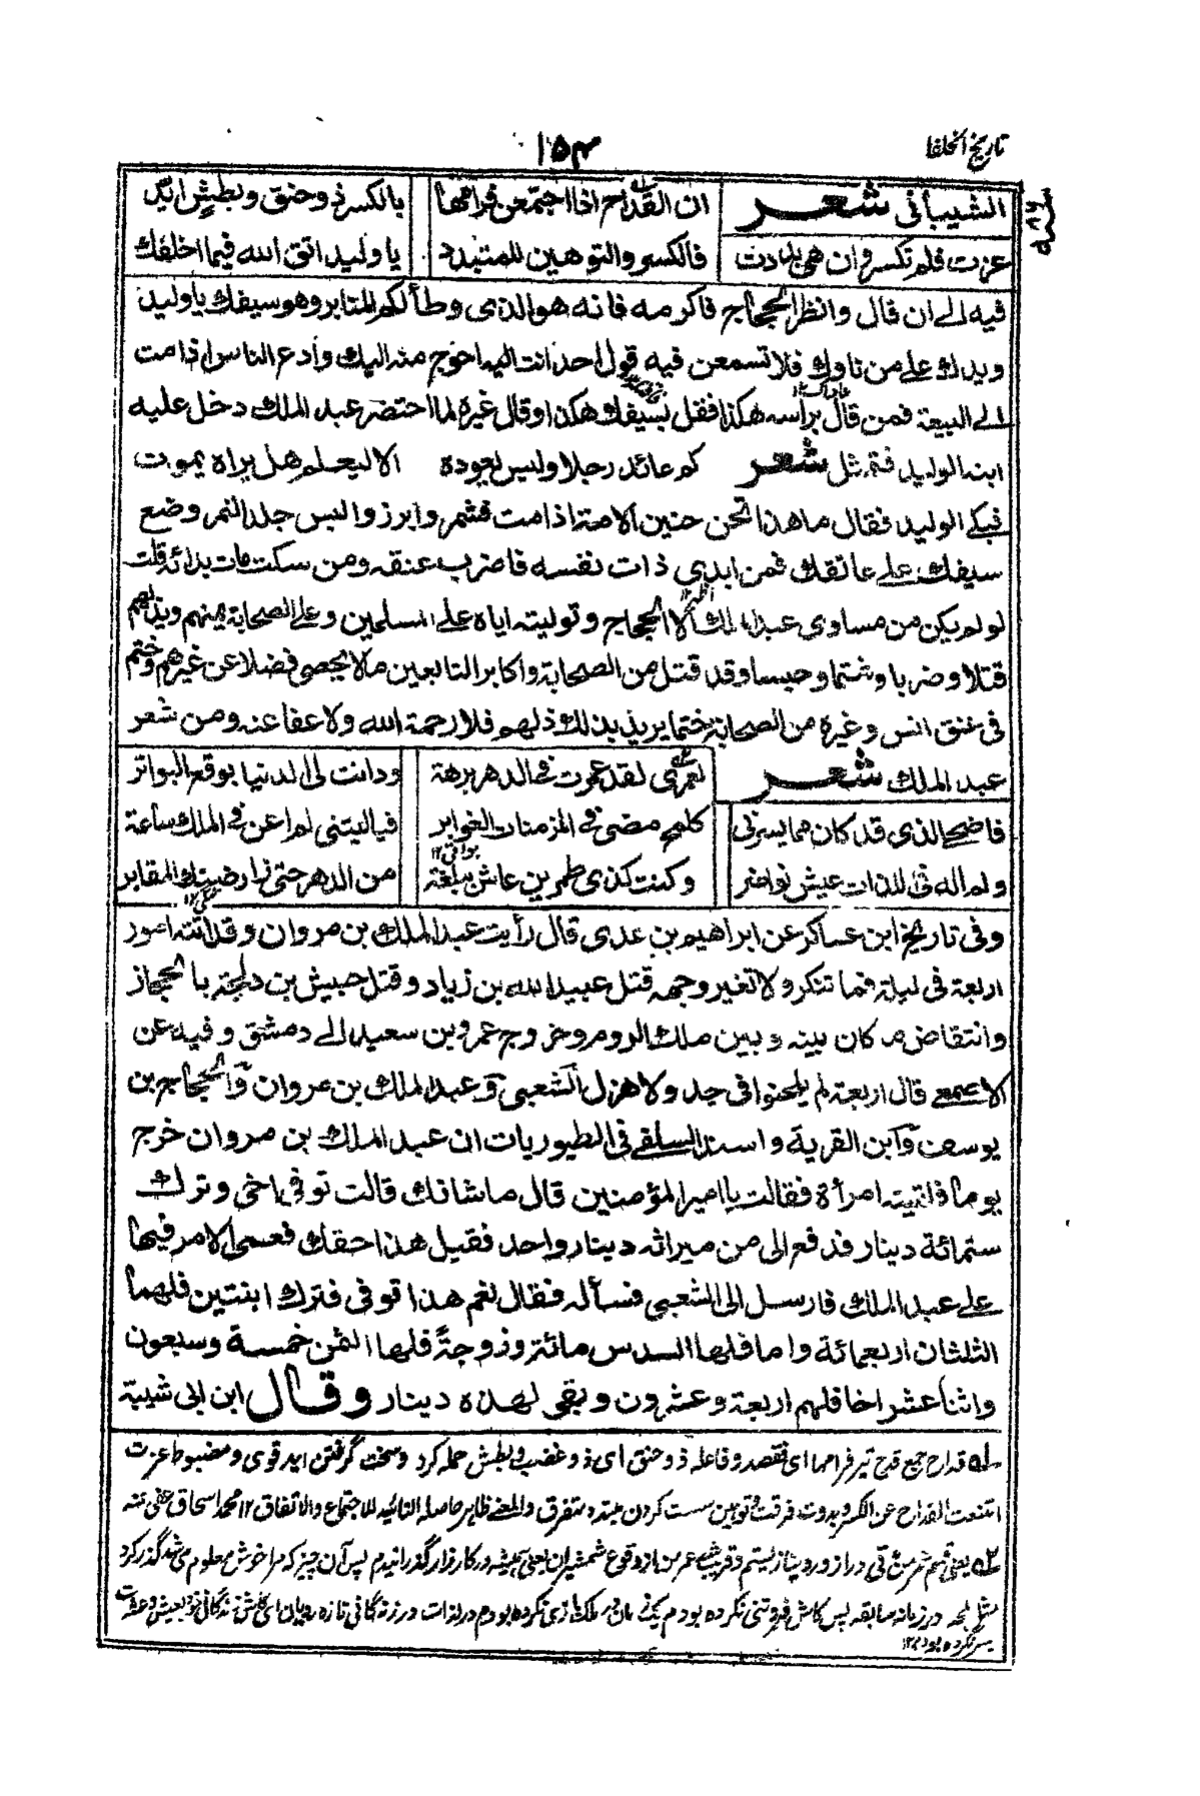 تاريخ الخلفا
١٥٣
الشيبانى شعر ان القداح اذا اجتمعن فرامها بالكسر ذو حنق وبطش ايد
عزت فلم تكسر وان هى بددت فالكسر والتوهين للمتبدد يا وليد اتق الله فيما اخلفك
فيه الى ان قال وانظر الحجاج فاكرمه فانه هو الذى وطأ لكم المنابر وهو سيفك يا وليد
ويدك على من ناوك فلا تسمعن فيه قول احد انت اليه احوج منه اليك وادع الناس اذا مت
الى البيعة فمن قال برأسه هكذا فقل بسيفك هكذا وقال غيره لما احتضر عبد الملك دخل عليه
ابنه الوليد فتمثل شعر كم عائد رجلا وليس يعوده الا ليعلم هل يراه يموت
فبكى الوليد فقال ما هذا تحن حنين الامة اذا مت فشمر وابرز والبس جلد النمر وضع
سيفك على عاتقك فمن ابدى ذات نفسه فاضرب عنقه ومن سكت مات بدائه قلت
لو لم يكن من مساوى عبد الملك الا الحجاج وتوليته اياه على المسلمين وعلى الصحابة يهينهم ويذلهم
قتلا وضربا وشتما وحبسا وقد قتل من الصحابة واكابر التابعين ما لا يحصى فضلا عن غيرهم وختم
فى عنق انس وغيره من الصحابة ختما يريد بذلك ذلهم فلا رحمة الله ولا عفا عنه ومن شعر
عبد الملك شعر لعمرى لقد عمرت فى الدهر برهة ودانت لى الدنيا بوقع البواتر
فاضحى الذى قد كان مما يسرنى كلمح مضى فى المزمنات الغوابر فيا ليتنى لم اعن فى الملك ساعة
ولم اله فى لذات عيش نواضر وكنت كذى طمرين عاش ببلغة من الدهر حتى زار ضنك المقابر
وفى تاريخ ابن عساكر عن ابراهيم بن عدى قال رأيت عبد الملك بن مروان وقد اتته امور
اربعة فى ليلة فما تنكر ولا تغير وجهه قتل عبيد الله بن زياد وقتل حبيش بن دلجة بالحجاز
وانتقاض ما كان بينه وبين ملك الروم وخروج عمرو بن سعيد الى دمشق وفيه عن
الاصمعى قال اربعة لم يلحنوا فى جد ولا هزل الشعبى و عبد الملك بن مروان والحجاج بن
يوسف وابن القرية واسند السلفى فى الطيوريات ان عبد الملك بن مروان خرج
يوما فلقيته امرأة فقالت يا امير المؤمنين قال ما شانك قالت توفى اخى وترك
ستمائة دينار فدفع الى من ميراثه دينار واحد فقيل هذا حقك فعمى الامر فيها
على عبد الملك فارسل الى الشعبى فسأله فقال نعم هذا توفى فترك ابنتين فلهما
الثلثان اربعمائة واما فلها السدس مائة وزوجة فلها الثمن خمسة وسبعون
واثنا عشر اخا فلهم اربعة وعشرون وبقى لهذه دينار وقال ابن ابى شيبة
قداح جمع قدح تير فرامها اى فقصد وفاعله ذو حنق اى ذو غضب وبطش حمله كرد وسخت گرفتن ايد قوى ومضبوط عزت
امتنعت القداح عن الكسر وبددت فرقت توهين سست كردن متبدد متفرق والمعنى ظاهر حاصله التائيد للاجتماع والاتفاق ١٢ محمد اسحاق عفى عنه